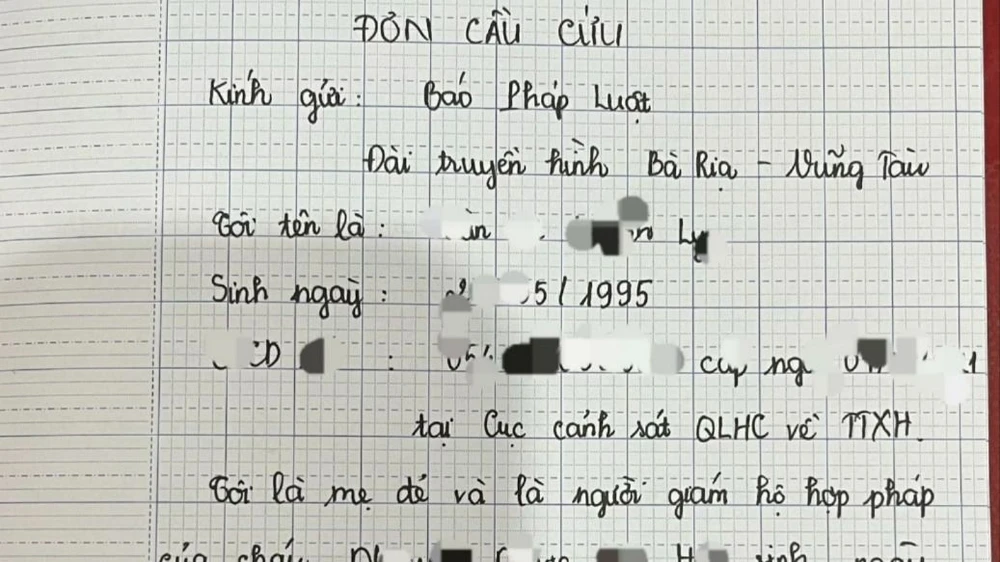 ĐƠN CẦU CỨU
Kính gửi: Báo Pháp Luật
Đài truyền hình Bà Rịa - Vũng Tàu
Tôi tên là: Ly
Sinh ngày: 5/1995
: cấp
tại Cục cảnh sát QLHC về TTXH.
Tôi là mẹ đẻ và là người giám hộ hợp pháp
của cháu sinh ngày